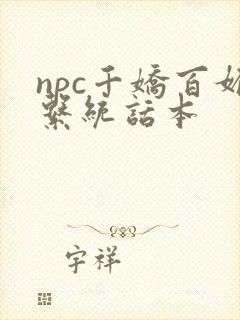 npc千嬌百媚
繫統話本
宇祥